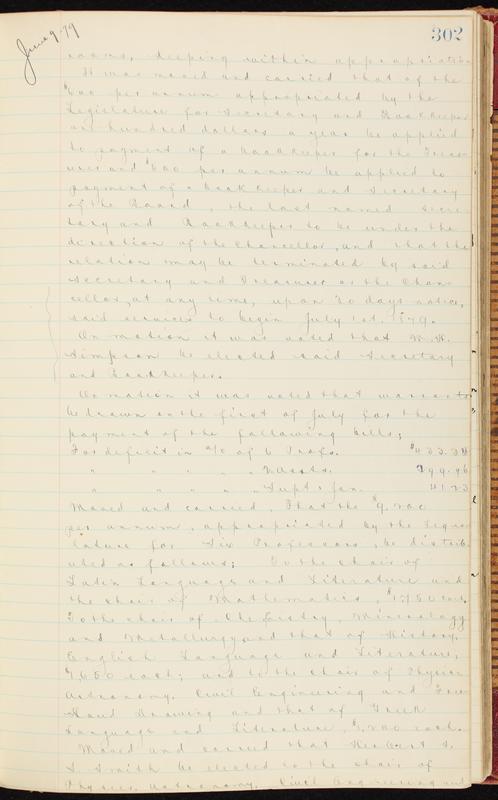 June 9-79
302
rooms, keeping within appropriation
It was moved and carried that of the
per annum appropriated by the
Legislature for Secretary and Bookkeeper
six hundred dollars a year be applied
to payment of a bookkeeper for the Treas-
urer and $600 per annum be applied to
payment of a bookkeeper and Secretary
of the Board, the last named Secre-
tary and Bookkeeper to be under the
direction of the Chancellor, and that the
relation may be terminated by said
Secretary and Treasurer or the Chan-
cellor, at any time, upon 30 days notice,
said services to begin July 1st. 1879.
On motion it was voted that W. H.
Simpson be elected said Secretary
and Bookkeeper.
On motion it was voted that warrants
be drawn on the first of July for the
payment of the following bills;
For deficit in a/c of 6 Profs. $433.34
" " " " " Assts. 399.96
" " " " " Supt & Jan. 41.23
Moved and carried, That the $9,200
per annum, appropriated by the Legis-
lature for Six Professors, be distrib-
uted as follows; To the chair of
Latin Language and Literature and
the chair of Mathematics, $1,750 each.
To the chair of Chemistry, Mineralogy
and Metallurgy, and that of History,
English Language and Literature,
$1,650 each; and to the chair of Physics
Astronomy, Civil Engineering and Free
Hand Drawing and that of Greek
Language and Literature, $1,200 each.
Moved and carried that Herbert S.
S. Smith be elected to the chair of
Physics, Astronomy, Civil Engineering and